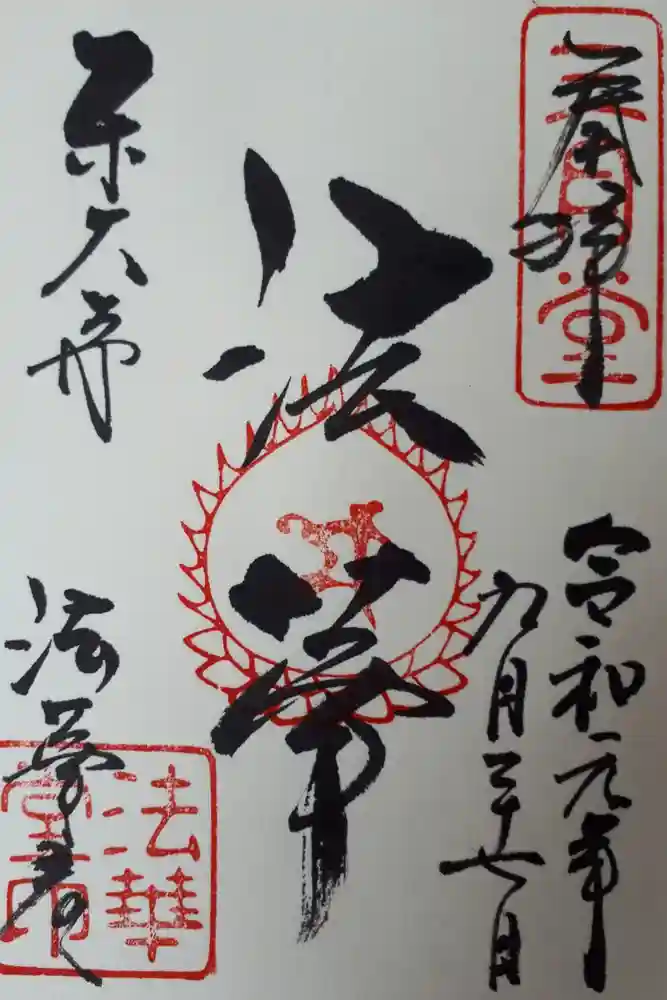 奉拝
三月堂
令和元年
九月二十七日
法華
東大寺
法華堂
法華
堂印